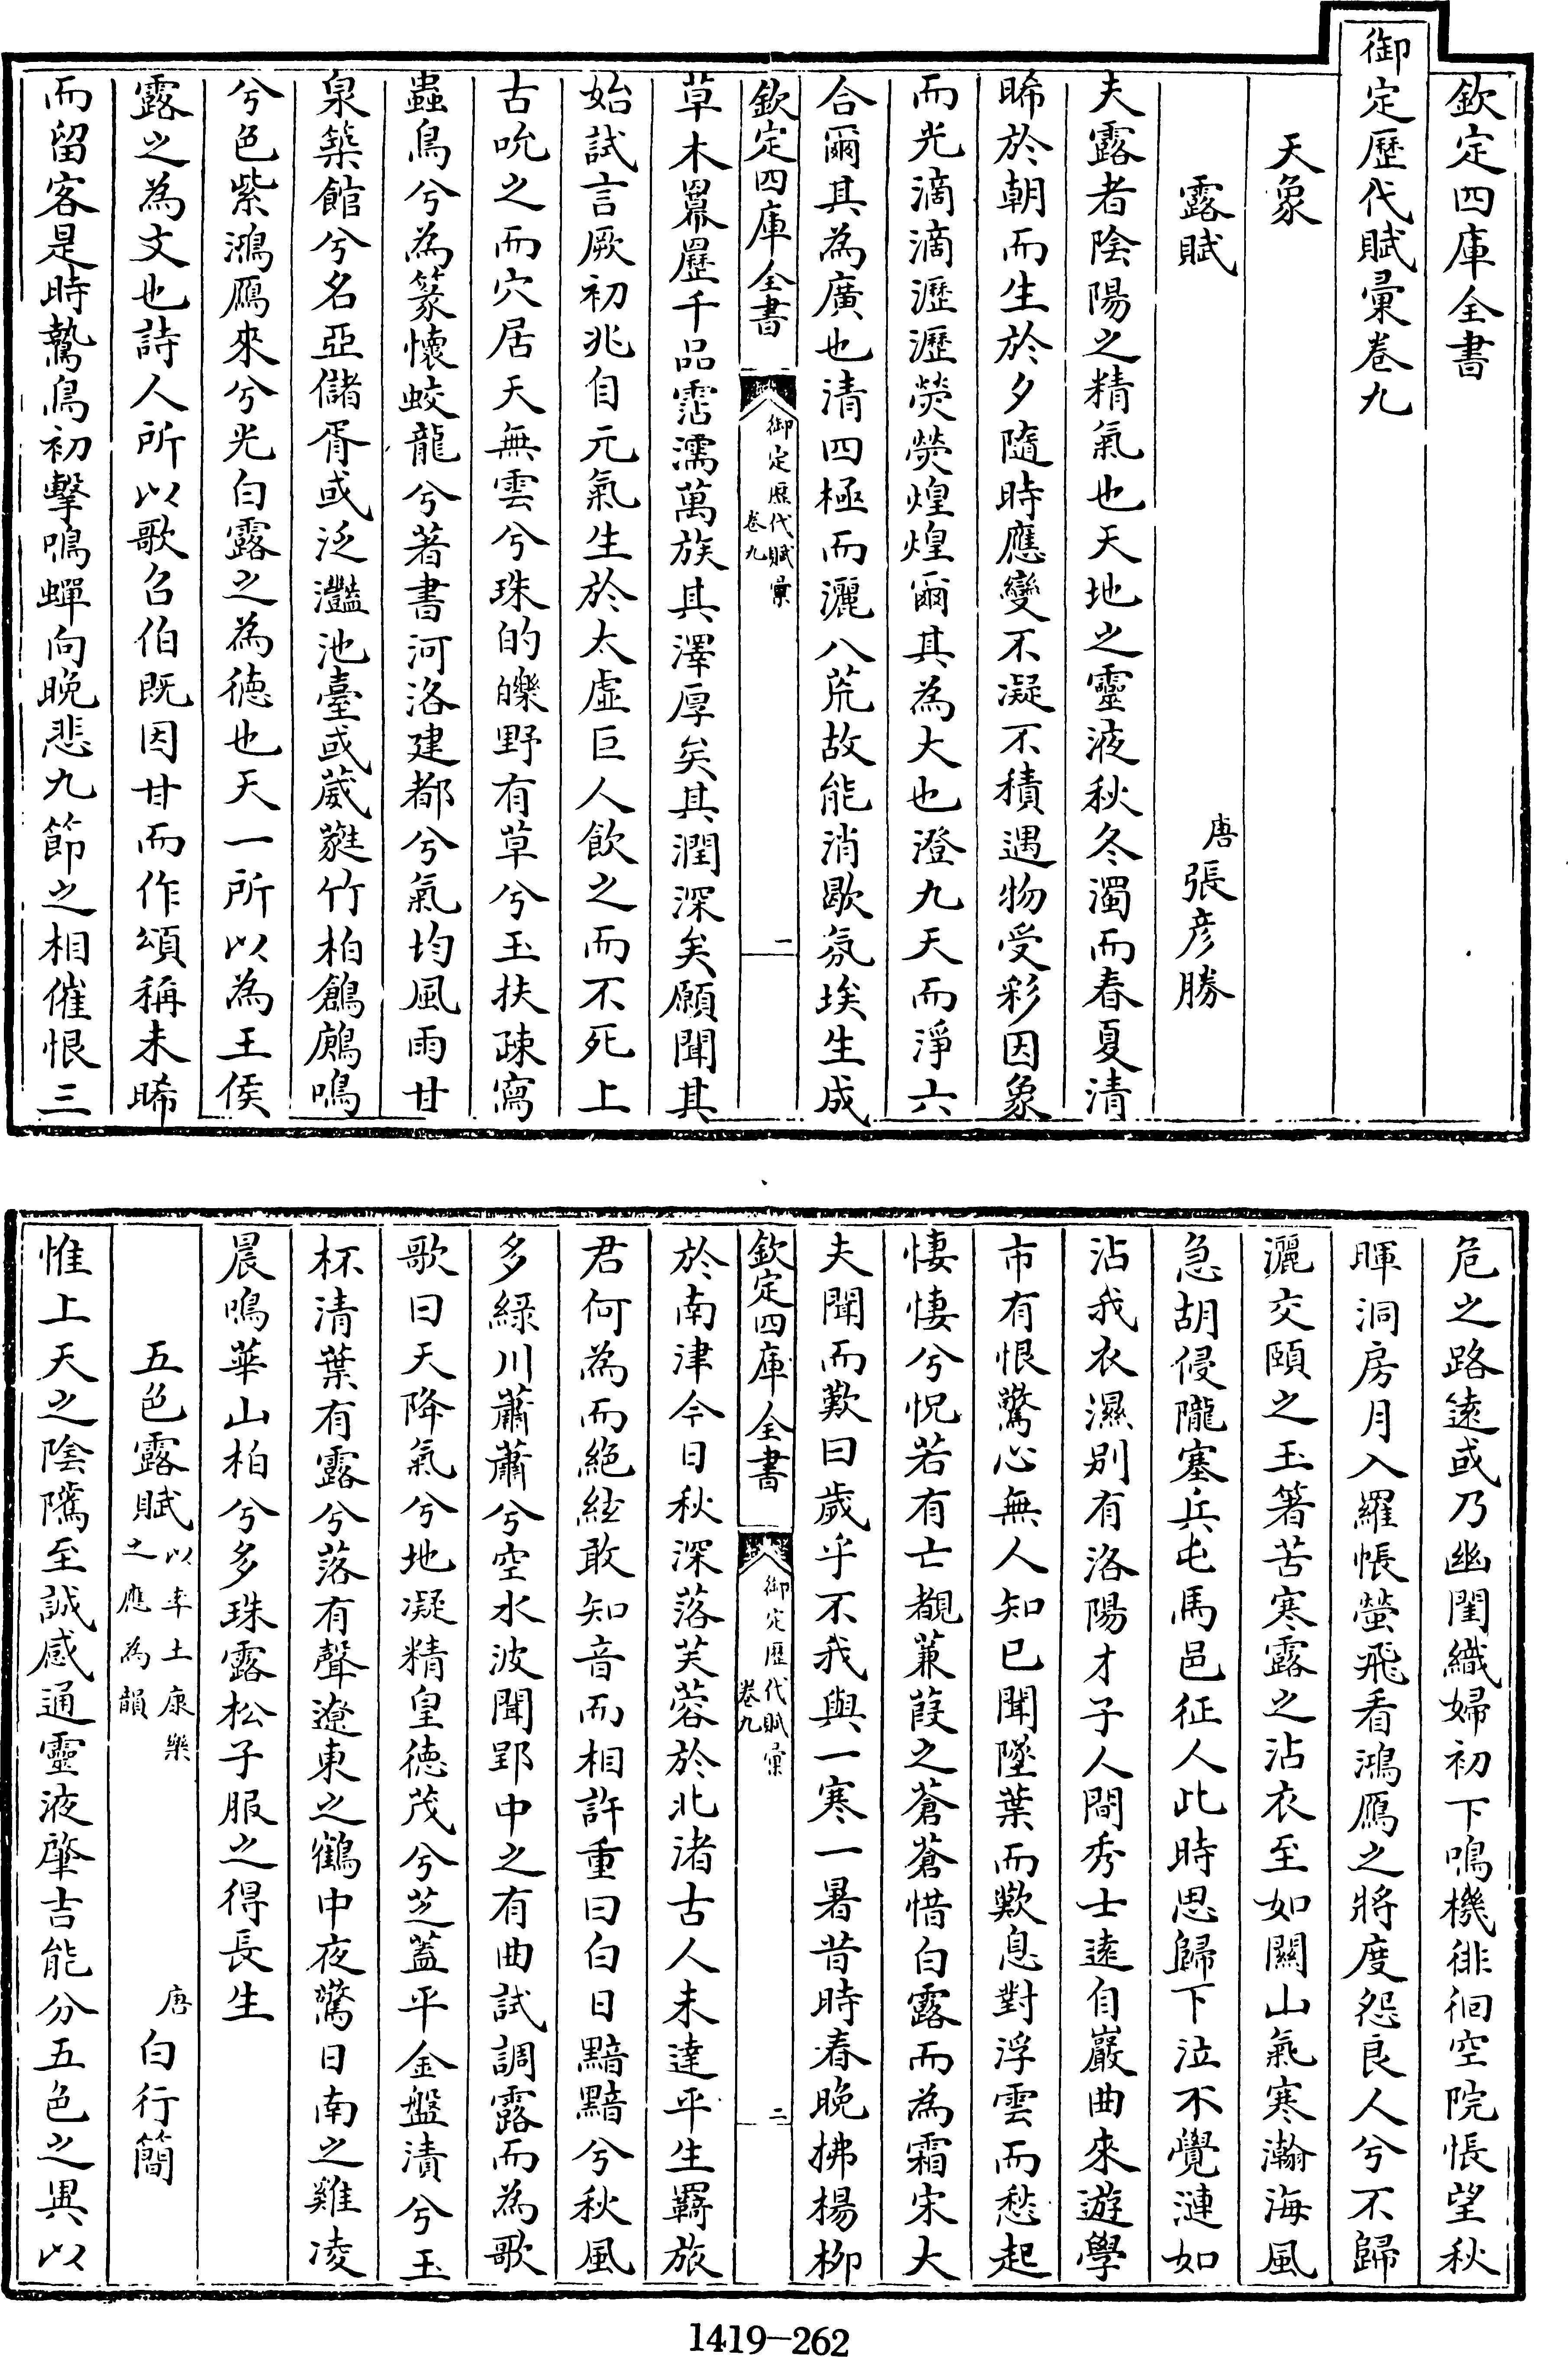 欽定四庫全書
御定歷代賦彙卷九
天象
露賦
唐張彥勝
夫露者陰陽之精氣也天地之靈液秋冬濁而春夏清
晞於朝而生於夕隨時應變不凝不積遇物受彩因象
而光滴滴瀝瀝熒熒煌煌爾其為大也澄九天而淨六
合爾其為廣也清四極而灑八荒故能消歇氛埃生成
欽定四庫全書
御定歷代賦彙
卷九
一
草木羃䍥千品霑濡萬族其澤厚矣其潤深矣願聞其
始試言厥初兆自元氣生於太虛巨人飲之而不死上
古吮之而穴居天無雲兮珠的皪野有草兮玉扶疎寫
蟲鳥兮為篆懷蛟龍兮著書河洛建都兮氣均風雨甘
泉築館兮名亞儲胥或泛灩池臺或葳蕤竹柏鶬鴳鳴
兮色紫鴻鴈來兮光白露之為德也天一所以為王侯
露之為文也詩人所以歌召伯既因甘而作頌稱未晞
而留客是時鷙鳥初擊鳴蟬向晚悲九節之相催恨三
危之路遠或乃幽閨織婦初下鳴機徘徊空院悵望秋
暉洞房月入羅帳螢飛看鴻鴈之將度怨良人兮不歸
灑交頤之玉箸苦寒露之沾衣至如關山氣寒瀚海風
急胡侵隴塞兵屯馬邑征人此時思歸下泣不覺漣如
沾我衣濕別有洛陽才子人間秀士遠自巖曲來遊學
市有恨驚心無人知已聞墜葉而歎息對浮雲而愁起
悽悽兮怳若有亡覩蒹葭之蒼蒼惜白露而為霜宋大
夫聞而歎曰歲乎不我與一寒一暑昔時春晚拂楊柳
欽定四庫全書
御定歷代賦彙
卷九
二
於南津今日秋深落芙蓉於北渚古人未達平生羇旅
君何為而絕絃敢知音而相許重曰白日黯黯兮秋風
多綠川蕭蕭兮空水波聞郢中之有曲試調露而為歌
歌曰天降氣兮地凝精皇德茂兮芝蓋平金盤漬兮玉
杯清葉有露兮落有聲遼東之鶴中夜驚日南之雞凌
晨鳴華山柏兮多珠露松子服之得長生
五色露賦以率土康樂之應為韻
唐白行簡
惟上天之陰隲至誠感通靈液肇吉能分五色之異以
1419-262